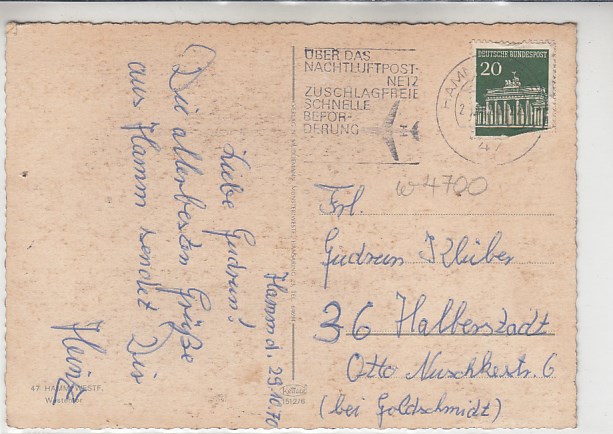 Hamm d. 29.10.70
Liebe Gudrun!
Die allerbesten Grüße
aus Hamm sendet Dir
Heinz
47 HAMM/WESTF.
ÜBER DAS
NACHTLUFTPOST-
NETZ
ZUSCHLAGFREIE
SCHNELLE
BEFÖR-
DERUNG
HAMM
47
DEUTSCHE BUNDESPOST
20
W 4700
Frl.
Gudrun Klüber
36 Halberstadt
Otto Nuschkestr. 6
(bei Goldschmidt)
151276